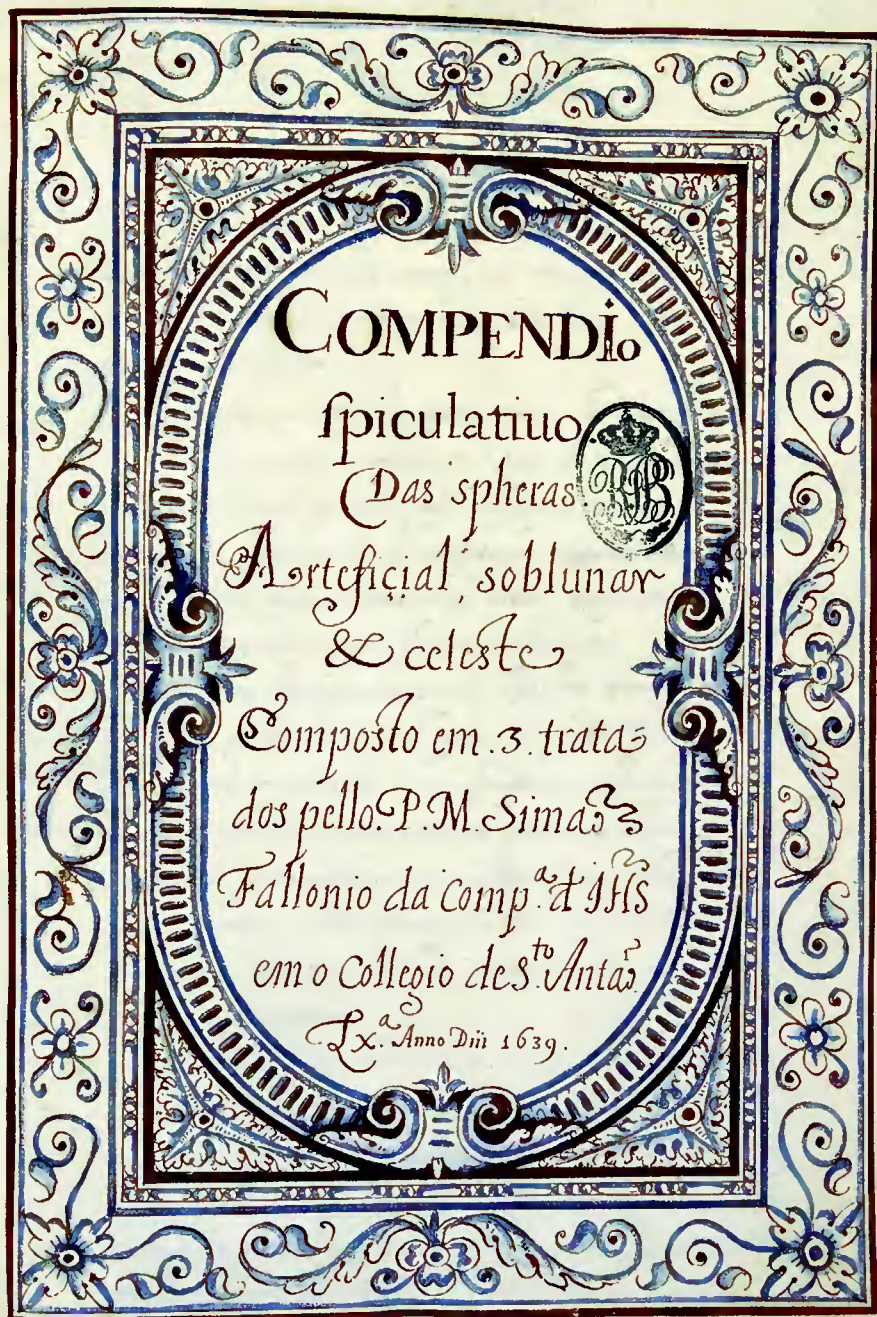 COMPENDIo
ſpiculatiuo
Das spheras
Arteficial, soblunar
& celeste
Composto em .3. trata
dos pello. P. M. Simaõ
Fallonio da Comp.ª d IHS
em o Collegio de S.to Antaõ
Lx.ª Anno Dñi 1639.